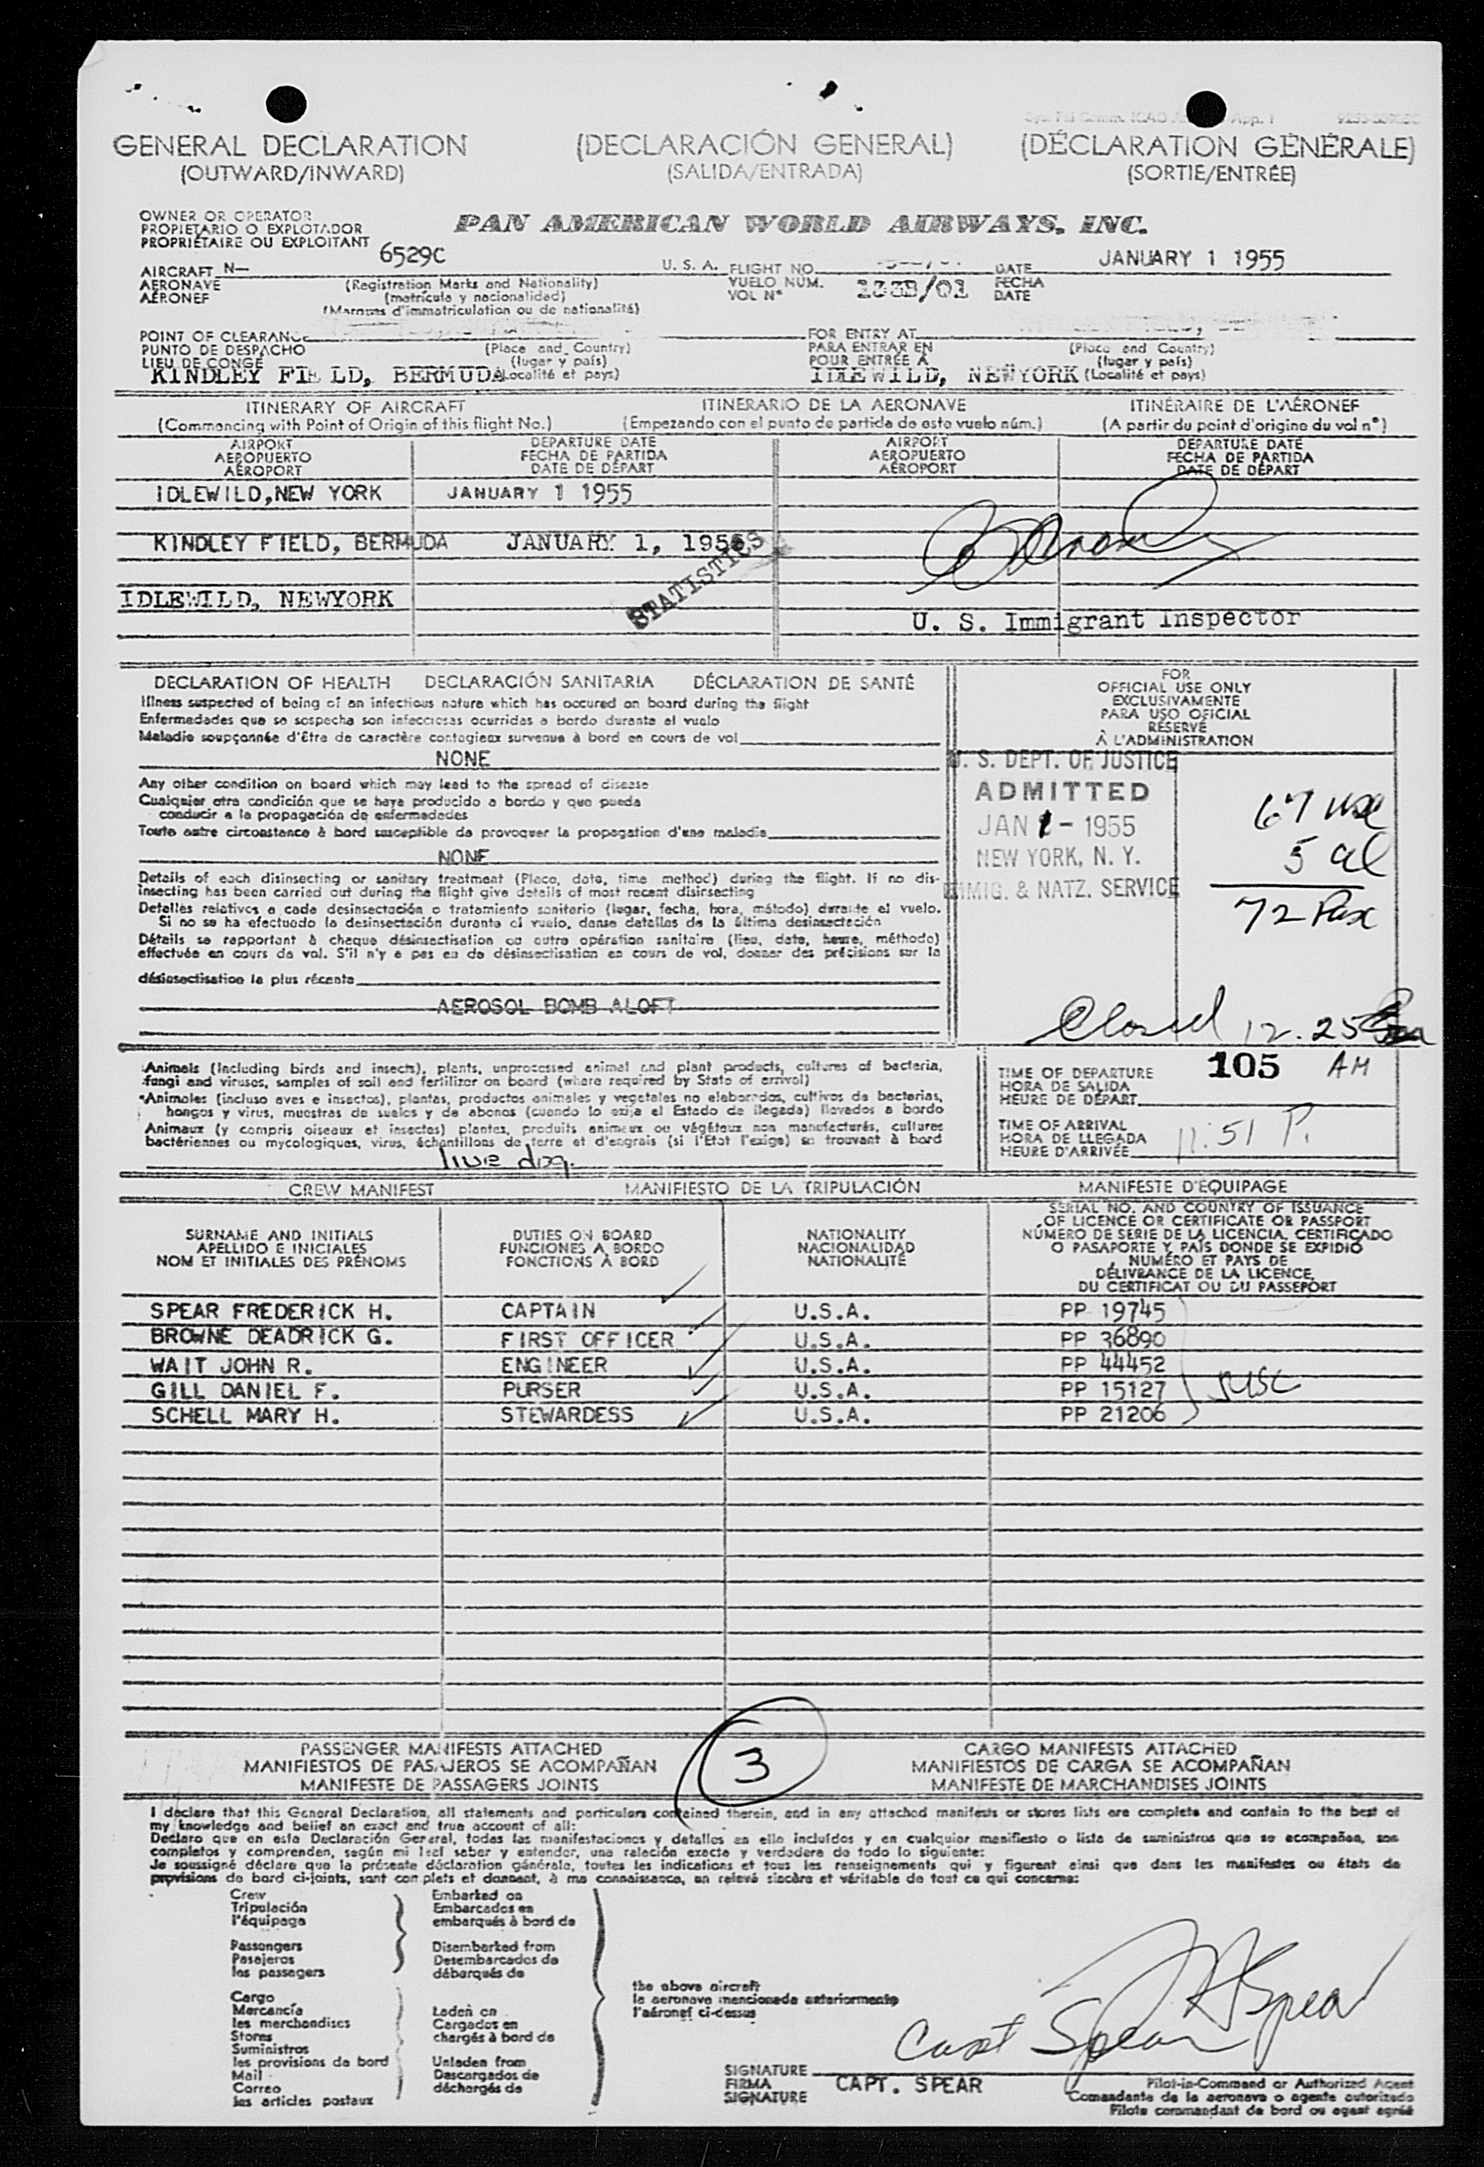 GENERAL DECLARATION (DECLARACIÓN GENERAL) (DÉCLARATION GÉNÉRALE)
(OUTWARD/INWARD) (SALIDA/ENTRADA) (SORTIE/ENTRÉE)
OWNER OR OPERATOR
PROPIETARIO O EXPLOTADOR
PROPRIÉTAIRE OU EXPLOITANT
PAN AMERICAN WORLD AIRWAYS, INC.
AIRCRAFT N— 6529C U. S. A. FLIGHT NO. DATE JANUARY 1 1955
AERONAVE (Registration Marks and Nationality) VUELO NÚM. FECHA
AÉRONEF (matrícula y nacionalidad) VOL N° DATE
(Marques d'immatriculation ou de nationalité)
POINT OF CLEARANCE FOR ENTRY AT
PUNTO DE DESPACHO (Place and Country) PARA ENTRAR EN (Place and Country)
LIEU DE CONGÉ (lugar y país) POUR ENTRÉE À (lugar y país)
KINDLEY FIELD, BERMUDA (Localité et pays) IDLEWILD, NEWYORK (Localité et pays)
ITINERARY OF AIRCRAFT ITINERARIO DE LA AERONAVE ITINÉRAIRE DE L'AÉRONEF
(Commencing with Point of Origin of this flight No.) (Empezando con el punto de partida de este vuelo núm.) (A partir du point d'origine du vol n°)
AIRPORT DEPARTURE DATE AIRPORT DEPARTURE DATE
AEROPUERTO FECHA DE PARTIDA AEROPUERTO FECHA DE PARTIDA
AÉROPORT DATE DE DÉPART AÉROPORT DATE DE DÉPART
IDLEWILD, NEW YORK JANUARY 1 1955
KINDLEY FIELD, BERMUDA JANUARY 1, 1955
STATISTICS
IDLEWILD, NEWYORK
U. S. Immigrant Inspector
DECLARATION OF HEALTH DECLARACIÓN SANITARIA DÉCLARATION DE SANTÉ
Illness suspected of being of an infectious nature which has occured on board during the flight
Enfermedades que se sospecha son infecciosas ocurridas a bordo durante el vuelo
Maladie soupçonnée d'être de caractère contagieux survenue à bord en cours de vol
NONE
Any other condition on board which may lead to the spread of disease
Cualquier otra condición que se haya producido a bordo y que pueda
conducir a la propagación de enfermedades
Toute autre circonstance à bord susceptible de provoquer la propagation d'une maladie
NONE
Details of each disinsecting or sanitary treatment (Place, date, time method) during the flight. If no dis-
insecting has been carried out during the flight give details of most recent disinsecting
Detalles relativos a cada desinsectación o tratamiento sanitario (lugar, fecha, hora, método) durante el vuelo.
Si no se ha efectuado la desinsectación durante el vuelo, danse detalles de la última desinsectación
Détails se rapportant à chaque désinsectisation ou autre opération sanitaire (lieu, date, heure, méthode)
effectuée en cours de vol. S'il n'y a pas eu de désinsectisation en cours de vol, donner des précisions sur la
désinsectisation la plus récente
AEROSOL BOMB ALOFT
FOR
OFFICIAL USE ONLY
EXCLUSIVAMENTE
PARA USO OFICIAL
RÉSERVÉ
À L'ADMINISTRATION
U. S. DEPT. OF JUSTICE
ADMITTED
JAN 1 - 1955
NEW YORK, N. Y.
IMMIG. & NATZ. SERVICE
67 usc
5 al
72 Pax
Closed 12.25
AM
Animals (Including birds and insects), plants, unprocessed animal and plant products, cultures of bacteria,
fungi and viruses, samples of soil and fertilizer on board (where required by State of arrival)
Animales (incluso aves e insectos), plantas, productos animales y vegetales no elaborados, cultivos de bacterias,
hongos y virus, muestras de suelos y de abonos (cuando lo exija el Estado de llegada) llevados a bordo
Animaux (y compris oiseaux et insectes) plantes, produits animaux ou végétaux non manufacturés, cultures
bactériennes ou mycologiques, virus, échantillons de terre et d'engrais (si l'État l'exige) se trouvant à bord
live dog.
TIME OF DEPARTURE 105
HORA DE SALIDA
HEURE DE DÉPART
TIME OF ARRIVAL
HORA DE LLEGADA 11:51 P.
HEURE D'ARRIVÉE
CREW MANIFEST MANIFIESTO DE LA TRIPULACIÓN MANIFESTE D'ÉQUIPAGE
SURNAME AND INITIALS
APELLIDO E INICIALES
NOM ET INITIALES DES PRÉNOMS
DUTIES ON BOARD
FUNCIONES A BORDO
FONCTIONS À BORD
NATIONALITY
NACIONALIDAD
NATIONALITÉ
SERIAL NO. AND COUNTRY OF ISSUANCE
OF LICENCE OR CERTIFICATE OR PASSPORT
NÚMERO DE SERIE DE LA LICENCIA, CERTIFICADO
O PASAPORTE Y PAÍS DONDE SE EXPIDIÓ
NUMÉRO ET PAYS DE
DÉLIVRANCE DE LA LICENCE,
DU CERTIFICAT OU DU PASSEPORT
SPEAR FREDERICK H. CAPTAIN U.S.A. PP 19745
BROWNE DEADRICK G. FIRST OFFICER U.S.A. PP 36890
WAIT JOHN R. ENGINEER U.S.A. PP 44452
GILL DANIEL F. PURSER U.S.A. PP 15127
SCHELL MARY H. STEWARDESS U.S.A. PP 21206
5 USC
PASSENGER MANIFESTS ATTACHED CARGO MANIFESTS ATTACHED
MANIFIESTOS DE PASAJEROS SE ACOMPAÑAN 3 MANIFIESTOS DE CARGA SE ACOMPAÑAN
MANIFESTE DE PASSAGERS JOINTS MANIFESTE DE MARCHANDISES JOINTS
I declare that this General Declaration, all statements and particulars contained therein, and in any attached manifests or stores lists are complete and contain to the best of
my knowledge and belief an exact and true account of all:
Declaro que en esta Declaración General, todas las manifestaciones y detalles en ella incluídos y en cualquier manifiesto o lista de suministros que se acompañan, son
completos y comprenden, según mi leal saber y entender, una relación exacta y verdadera de todo lo siguiente:
Je soussigné déclare que la présente déclaration générale, toutes les indications et tous les renseignements qui y figurent ainsi que dans les manifestes ou états de
provisions de bord ci-joints, sont complets et donnent, à ma connaissance, un relevé sincère et véritable de tout ce qui concerne:
Crew Embarked on
Tripulación Embarcados en
l'équipage embarqués à bord de
Passengers Disembarked from
Pasajeros Desembarcados de
les passagers débarqués de
the above aircraft
la aeronave mencionada anteriormente
l'aéronef ci-dessus
Cargo
Mercancía Laden on
les merchandises Cargados en
Stores chargés à bord de
Suministros
les provisions de bord Unladen from
Mail Descargados de
Correo déchargés de
les articles postaux
Capt Spear
SIGNATURE
FIRMA CAPT. SPEAR
SIGNATURE
Pilot-in-Command or Authorized Agent
Comandante de la aeronave o agente autorizado
Pilote commandant de bord ou agent agréé